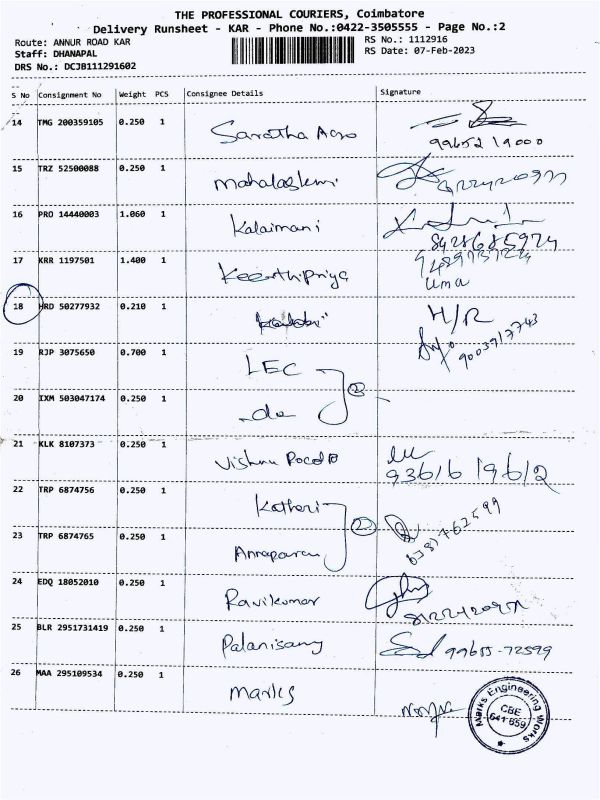 THE PROFESSIONAL COURIERS, Coimbatore
Delivery Runsheet - KAR - Phone No.:0422-3505555 - Page No.:2
Route: ANNUR ROAD KAR
RS No.: 1112916
Staff: DHANAPAL
RS Date: 07-Feb-2023
DRS No.: DCJB111291602
S No Consignment No Weight PCS Consignee Details Signature
14 TMG 200359105 0.250 1 Saratha Agro
99652 19000
15 TRZ 52500088 0.250 1 Mahalaxmi
16 PRO 14440003 1.060 1 Kalaimani
8428685974
17 KRR 1197501 1.400 1 Keerthipriya
Uma
18 HRD 50277932 0.210 1
H/R
9003917743
19 RJP 3075650 0.700 1 LEC
20 IXM 503047174 0.250 1 do
2
21 KLK 8107373 0.250 1 Vishnu
93616 19612
22 TRP 6874756 0.250 1 Kathari
2
23 TRP 6874765 0.250 1
24 EDQ 18052010 0.250 1 Ravikumar
25 BLR 2951731419 0.250 1 Palanisamy
99655-72599
26 MAA 295109534 0.250 1 Marks
Marks Engineering Works
CBE
641 659